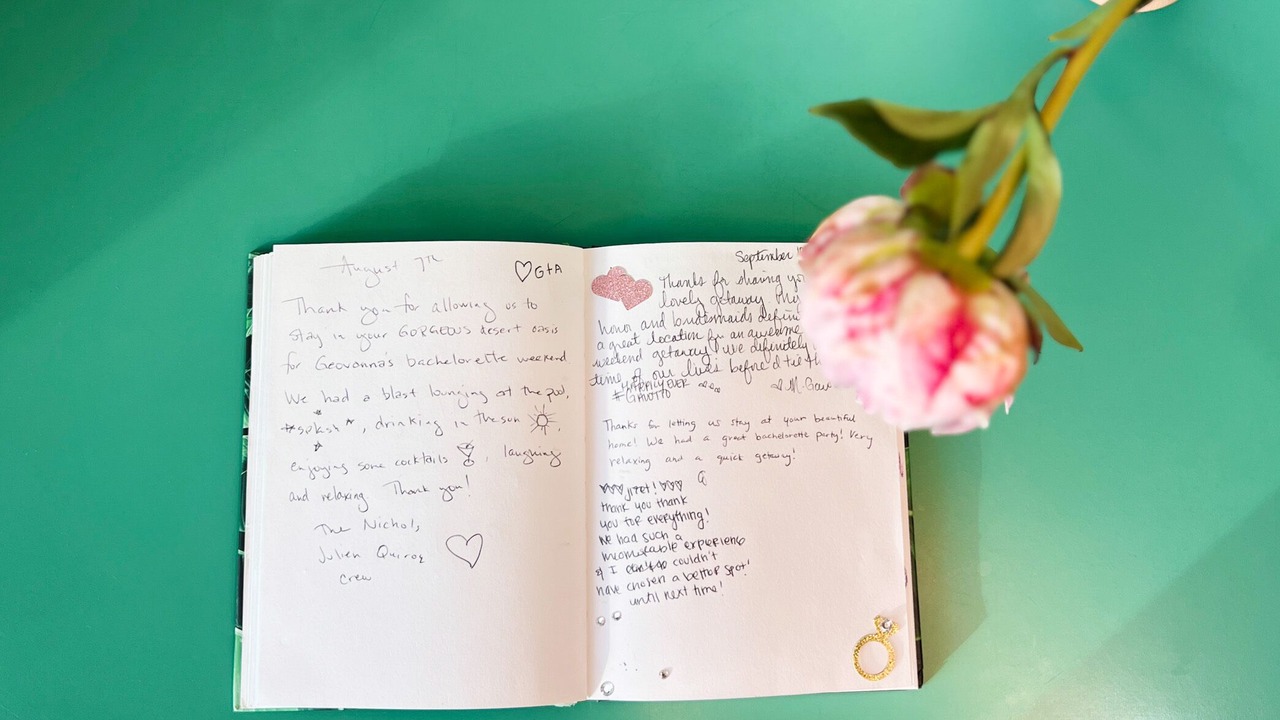 August 7th
G+A
Thank you for allowing us to
stay in your GORGEOUS desert oasis
for Geovanna's bachelorette weekend
We had a blast lounging at the pool,
*splash*, drinking in the sun,
enjoying some cocktails, laughing
and relaxing. Thank you!
The Nichols,
Julien Quiroz
crew
September
Thanks for sharing
lovely getaway. My
honor and bridesmaids
a great location for an awesome
weekend getaway! We definitely
time of our lives before
#HAPPILYEVER
GAVOTTO
M.
Thanks for letting us stay at your beautiful
home! We had a great bachelorette party! Very
relaxing and a quick getaway!
thank you thank
you for everything!
We had such a
memorable experience
& I couldn't
have chosen a better spot!
until next time!